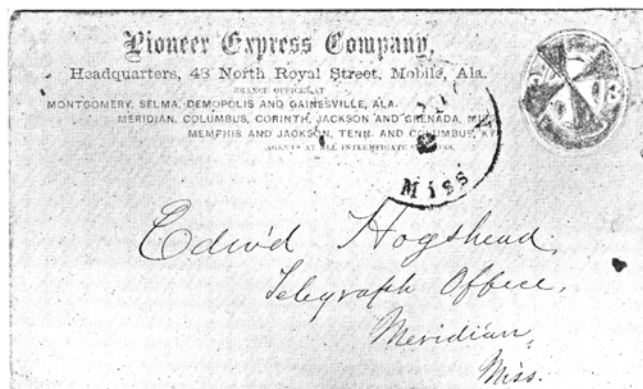 Pioneer Express Company,
Headquarters, 43 North Royal Street, Mobile, Ala.
BRANCH OFFICES AT
MONTGOMERY, SELMA, DEMOPOLIS AND GAINESVILLE, ALA.
MERIDIAN, COLUMBUS, CORINTH, JACKSON AND GRENADA, MISS.
MEMPHIS AND JACKSON, TENN. AND COLUMBUS, KY.
AGENTS AT ALL INTERMEDIATE STATIONS.
MISS
Edw'd Hogshead,
Telegraph Office,
Meridian,
Miss.